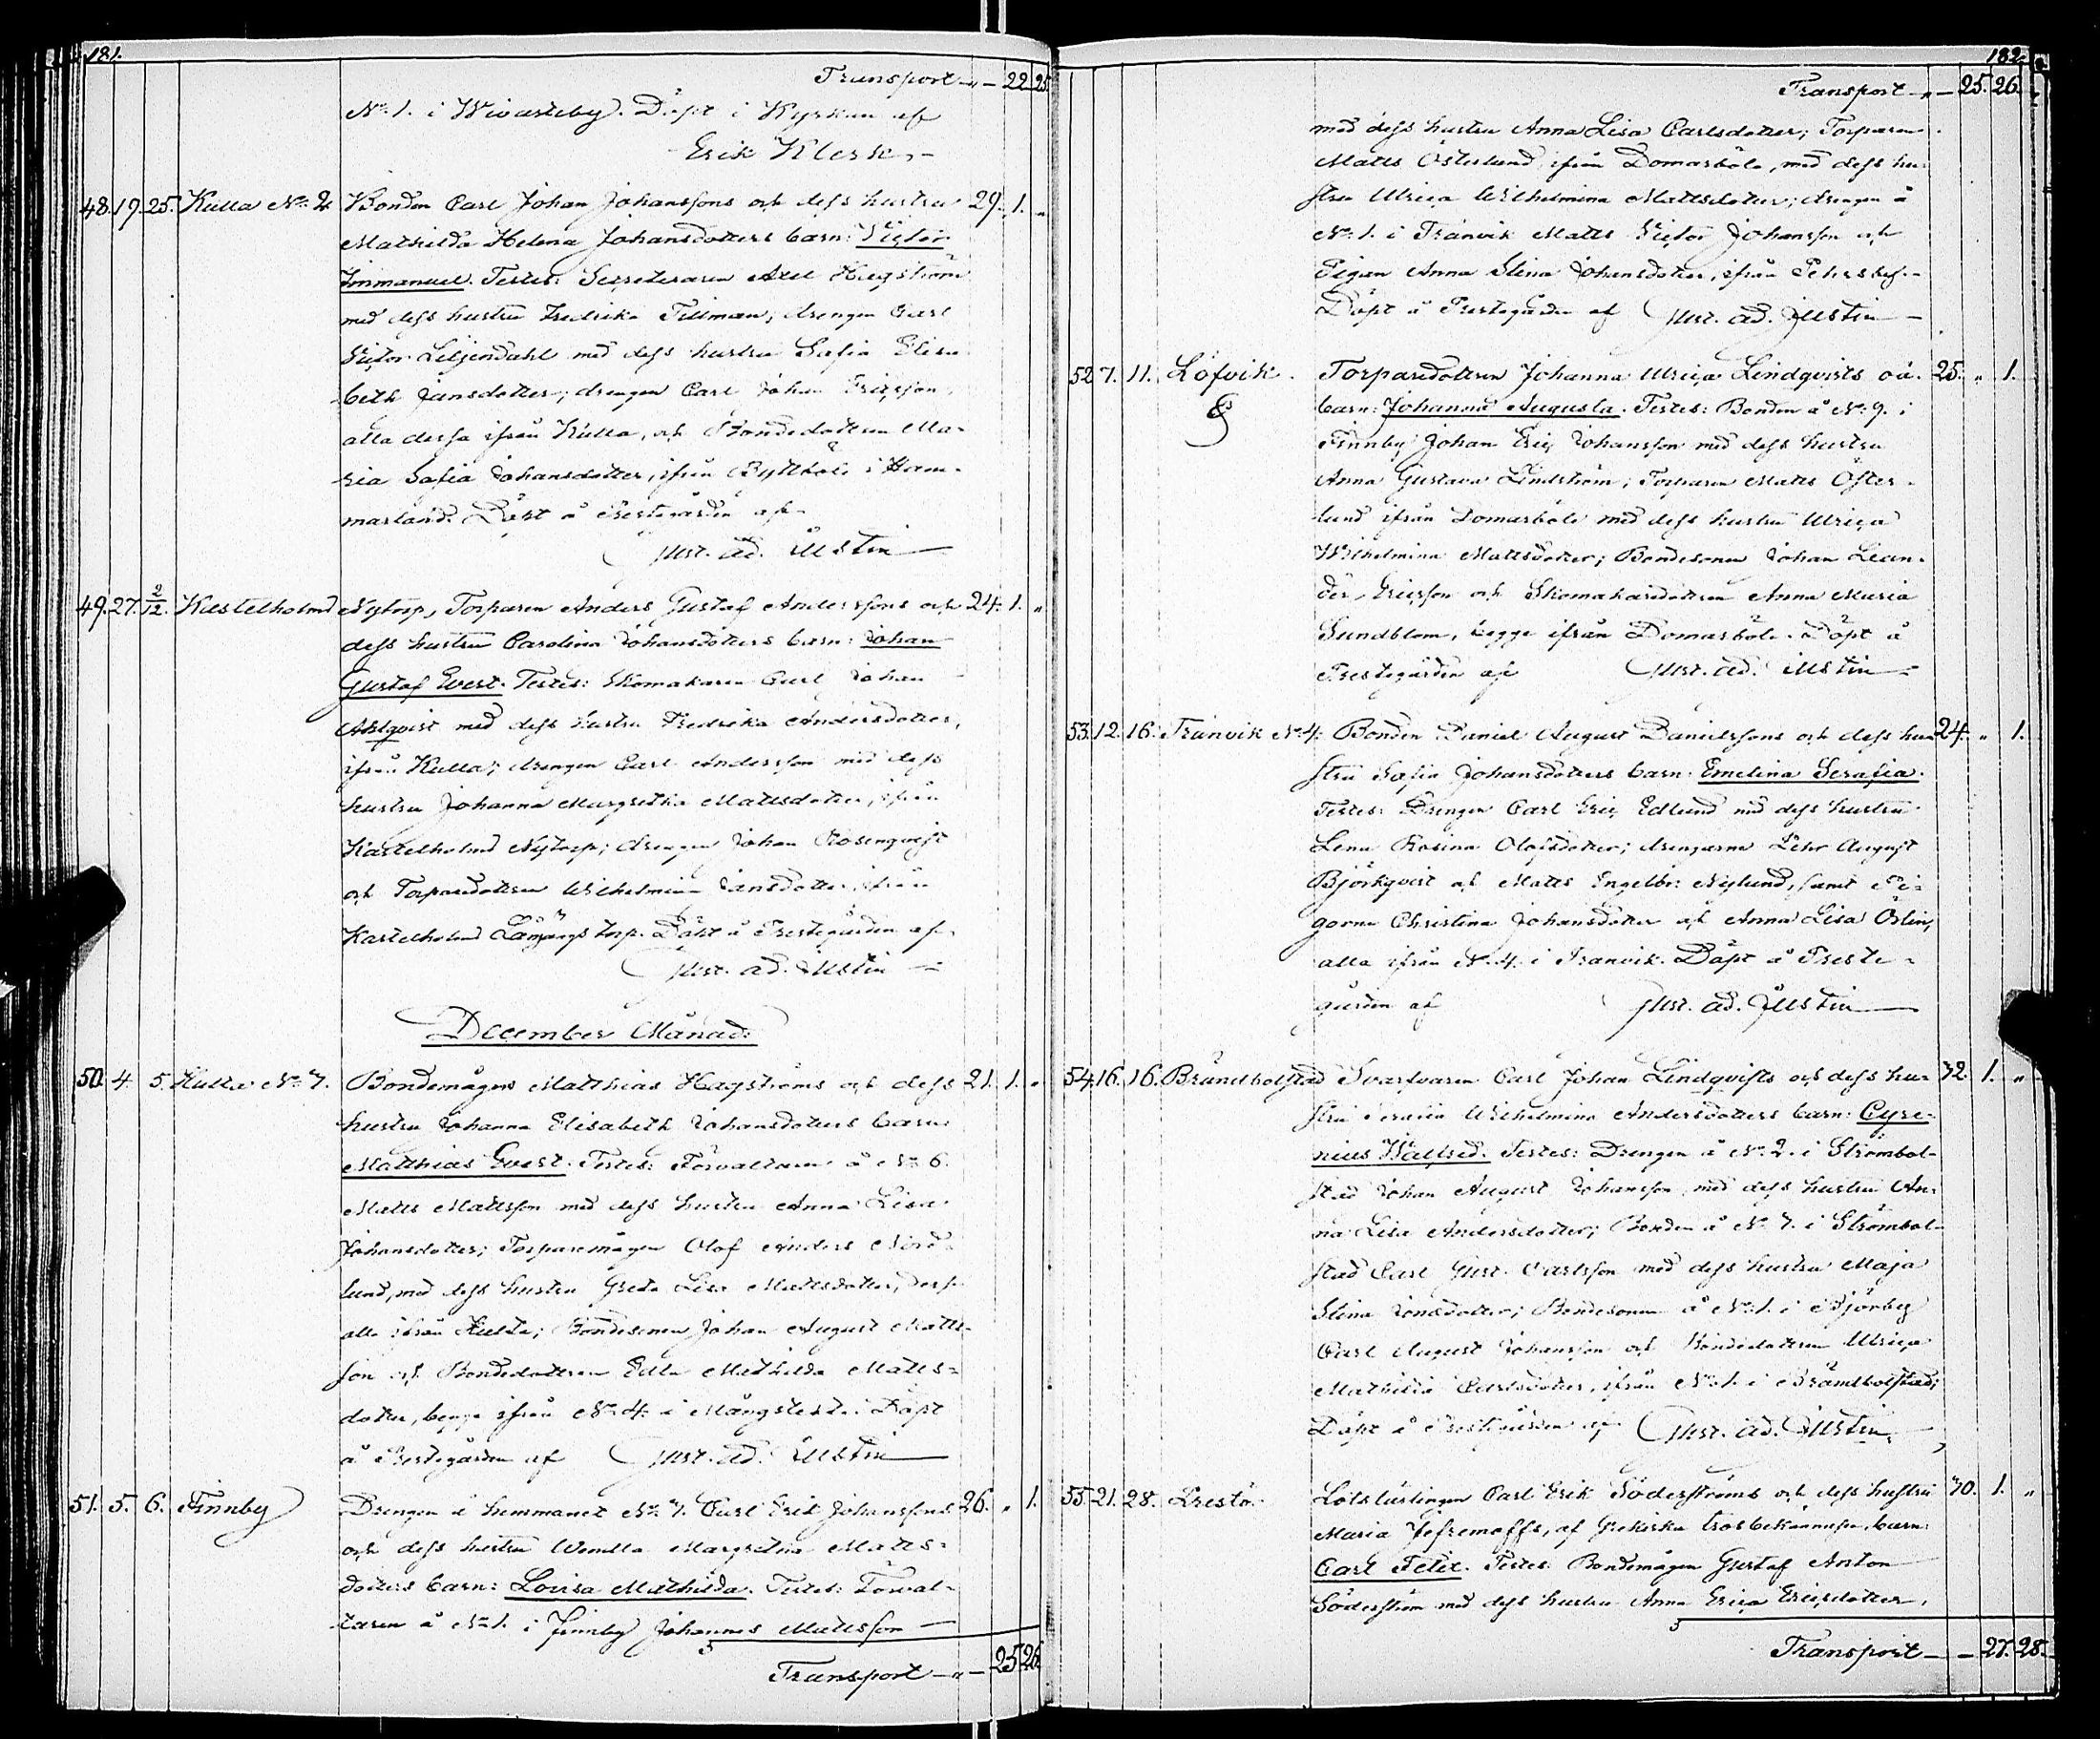 181.
Transport -„- 22. 25.
No 1. i Wivasteby. Döpt i Kyrkan af
Erik Klerk.
48. 19. 25. Kulla No 2. Bonden Carl Johan Johanssons och dess hustru 29. 1. „
Mathilda Helena Johansdotters barn: Victor
Immanuel. Testes: Secreteraren Axel Hägström
med dess hustru Fredrika Tillman, drengen Carl
Victor Liljendahl med dess hustru Sofia Elisa-
beth Jansdotter; drengen Carl Johan Ericsson,
alla dessa ifrån Kulla, och Bondedottren Ma-
ria Sofia Johansdotter, ifrån Byttböle i Ham-
marland. Döpt å Prestegården af
Gust. Ad. Üstin
49. 27. 2/12. Kastelholms Nytorp, Torparen Anders Gustaf Anderssons och 24. 1. „
dess hustru Carolina Johansdotters barn: Johan
Gustaf Evert. Testes: Skomakaren Carl Johan
Ahlqvist med dess hustru Fredrika Andersdotter,
ifrån Kulla; drengen Carl Andersson med dess
hustru Johanna Margretha Mattsdotter, ifrån
Kastelholms Nytorp; drengen Johan Rosenqvist
och Torparedottren Wilhelmina Jansdotter, ifrån
Kastelholms Långängs torp. Döpt å Prestegården af
Gust. Ad. Üstin
December Månad:
50. 4. 5. Kulla No 7. Bondemågens Matthias Hägströms och dess 21. 1. „
hustru Johanna Elisabeth Johansdotters barn:
Matthias Evert. Testes: Förvaltaren å No 6.
Matts Mattsson med dess hustru Anna Lisa
Johansdotter; Torparemågen Olof Anders Nord-
lund, med dess hustru Greta Lisa Mattsdotter, dess
alla ifrån Kulla; Bondesonen Johan August Matts-
son och Bondedottren Edla Mathilda Matts-
dotter, begge ifrån No 4. i Mångstekta. Döpt
å Prestegården af Gust. Ad. Üstin
51. 5. 6. Finnby Drengen å hemmanet No 7. Carl Erik Johanssons 26. „ 1.
och dess hustru Wendla Margretha Matts-
dotters barn: Lovisa Mathilda. Testes: Förval-
taren å No 1. i Finnby Johannes Mattsson
Transport -„- 25. 26.
182.
Transport -„- 25. 26.
med dess hustru Anna Lisa Carlsdotter; Torparen
Matts Österlund ifrån Domarböle, med dess hu-
stru Ulrica Wilhelmina Mattsdotter; drengen å
No 1. i Tranvik Matts Victor Johansson och
Pigan Anna Stina Johansdotter, ifrån
Döpt å Prestegården af Gust. Ad. Üstin
52. 7. 11. Löfvik. Torparedottren Johanna Ulrica Lindqvists oä. 25. „ 1.
barn: Johanna Augusta. Testes: Bonden å No 9. i
Finnby Johan Eric Johansson med dess hustru
Anna Gustava Lindström; Torparen Matts Öster-
lund ifrån Domarböle med dess hustru Ulrica
Wilhelmina Mattsdotter; Bondesonen Johan Lean-
der Ericsson och Skomakaredottren Anna Maria
Sundblom, begge ifrån Domarböle. Döpt å
Prestegården af Gust. Ad. Üstin
53. 12. 16. Tranvik No 4. Bonden Daniel August Danielssons och dess hu- 24. „ 1.
stru Sofia Johansdotters barn: Emelina Serafia.
Testes: Drengen Carl Eric Edlund med dess hustru
Lena Rosina Olofsdotter; drengarne Pehr August
Björkqvist och Matts Engelbr. Nylund, samt Pi-
gorna Christina Johansdotter och Anna Lisa Östin,
alla ifrån No 4. i Tranvik. Döpt å Preste-
gården af Gust. Ad. Üstin
54. 16. 16. Brändbolstad Svarfvaren Carl Johan Lindqvists och dess hu- 32. 1. „
stru Serafia Wilhelmina Andersdotters barn: Cyre-
nius Walfred. Testes: Drengen å No 2. i Strömbol-
stad Johan August Johansson, med dess hustru An-
na Lisa Andersdotter; Bonden å No 7. i Strömbol-
stad Carl Gust. Carlsson med dess hustru Maja
Stina Jonasdotter; Bondesonen å No 1. i Björby
Carl August Johansson och Bondedottren Ulrica
Mathilda Carlsdotter, ifrån No 1. i Brändbolstad;
Döpt å Prestegården af Gust. Ad. Üstin
55. 21. 28. Prestö. Lotslärlingen Carl Erik Söderströms och dess hustru 30. 1. „
Maria Jefremoffs, af Grekiska trosbekännelsen, barn:
Carl Feter. Testes: Bondemågen Gustaf Anton
Söderström med dess hustru Anna Erica Ericsdotter,
Transport - - 27. 28.